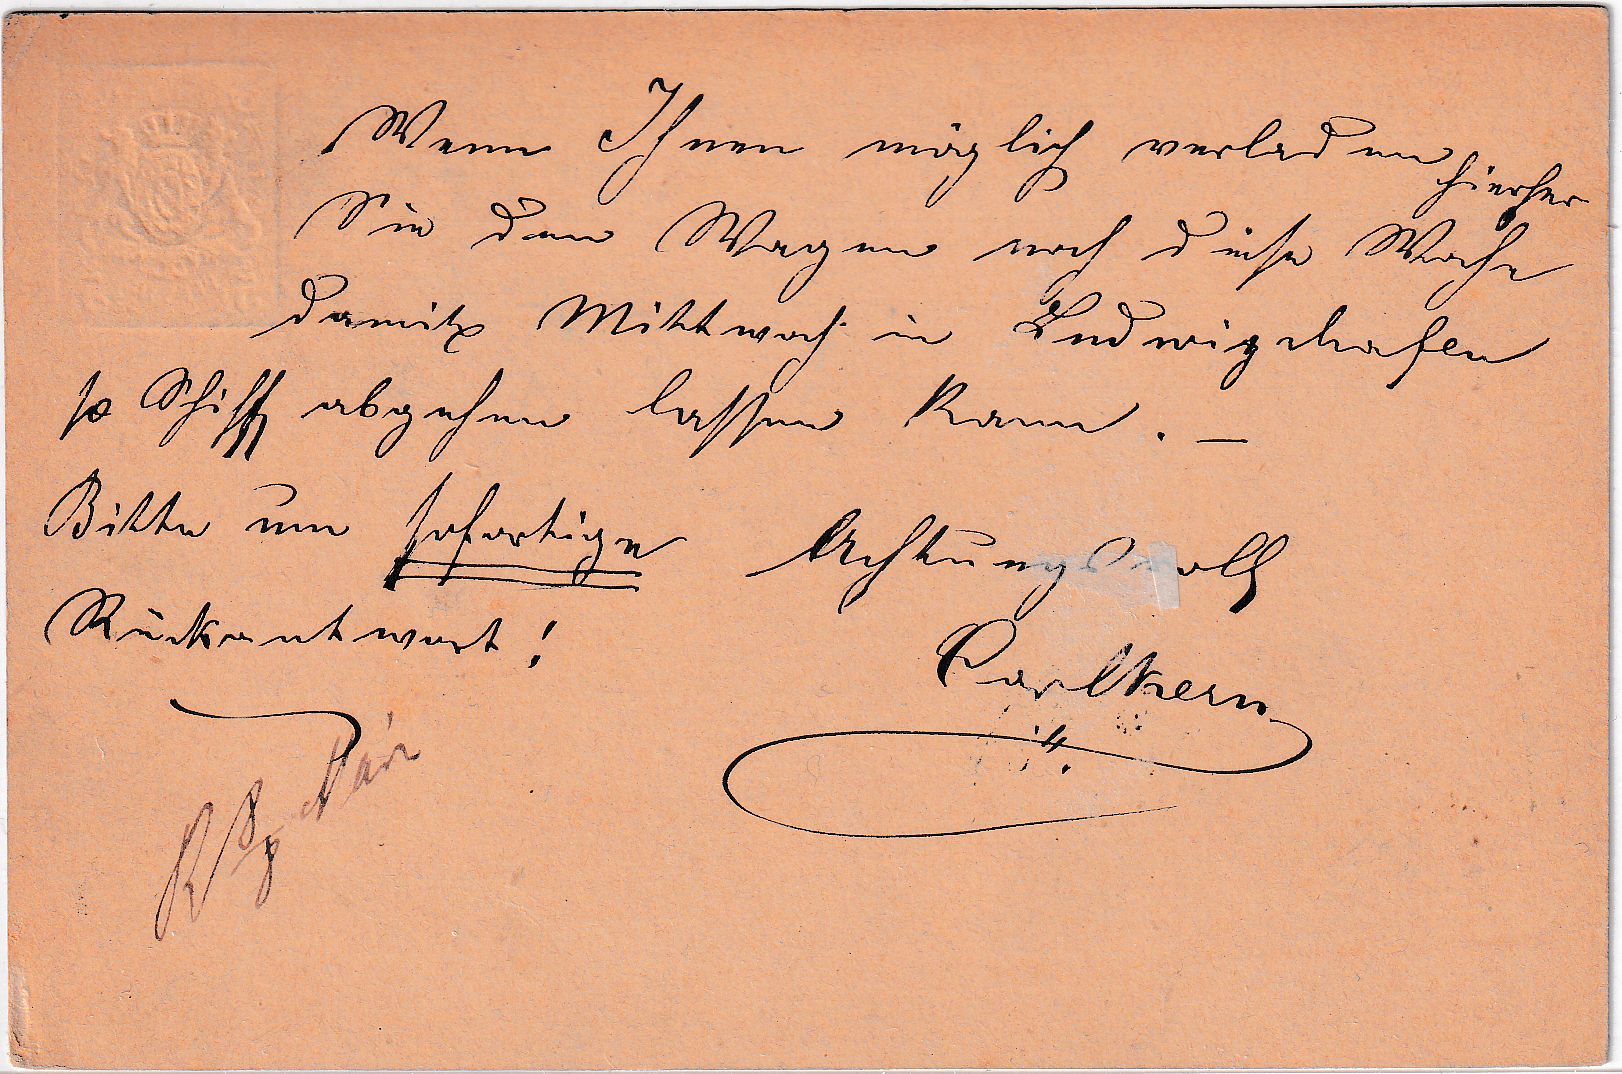 Wenn Ihnen möglich verladen
hierher
Sie den Wagen noch diese Woche
damit Mittwoch in Ludwigshafen
po Schiff abgehen lassen kann. —
Bitte um sofortige
Achtungsvoll
Rückantwort!
Carl Kern